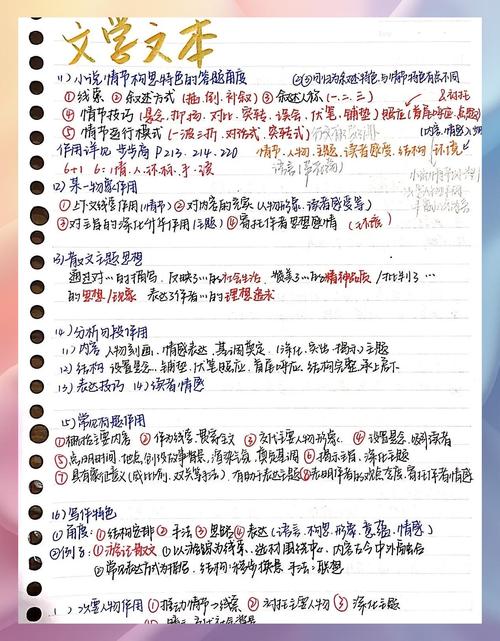 文学文本
(1) 小说情节构思特色的答题角度
①线索 ②叙述方式(插、倒、补叙) ③叙述人称(一、二、三)
④情节技巧(悬念、抑扬、对比、突转、误会、伏笔、铺垫) 照应(首尾呼应、点题)
⑤情节运行模式(一波三折、对话式、突转式)
(内容、情感)
作用详见 步步高 P213、214、220 情节、人物、主题、读者感度、结构 环境
6+1 6:情、人、环、标、手、读
(2) 某一物象作用
①上下文线索作用(情节) ②对内容的
③对主旨的深化升华作用(主题) ④寄托作者思想感情 (环境)
(3) 散文主题思想
通过对…的描写,反映了…的社会生活,赞美了…的精神品质/批判了…
的思想/现象 表达了作者…的理想追求
(4) 分析句段作用
(1) 内容 人物刻画,情感表达,基调奠定,(深化、突出、揭示)主题
(2) 结构 设置悬念、铺垫、伏笔照应、首尾呼应、结构完整、承上启下
(3) 表达技巧 (4) 读者情感
(5) 常见标题作用
①概括主要内容 ②作为线索、贯穿全文 ③交代主要人物形象 ④设置悬念、吸引读者
⑤点明时间、地点,创设故事背景,渲染气氛,奠定基调 ⑥揭示主旨、深化主题
⑦具有象征意义(或比喻、双关等手法),有助于表达主题 ⑧表明作者的观点态度,寄托作者情感
(6) 写作特色
①角度:①结构安排 ②手法 ③思路 ④表达(语言、构思、形象、意蕴、情感)
②例子:①游记散文 ①以游踪为线索,选材围绕中心,内容古今中外
②常见表达方式为描写,结构:移步换景 手法:联想
次要人物作用 ①推动情节→线索 ②衬托主要人物 ③深化主题